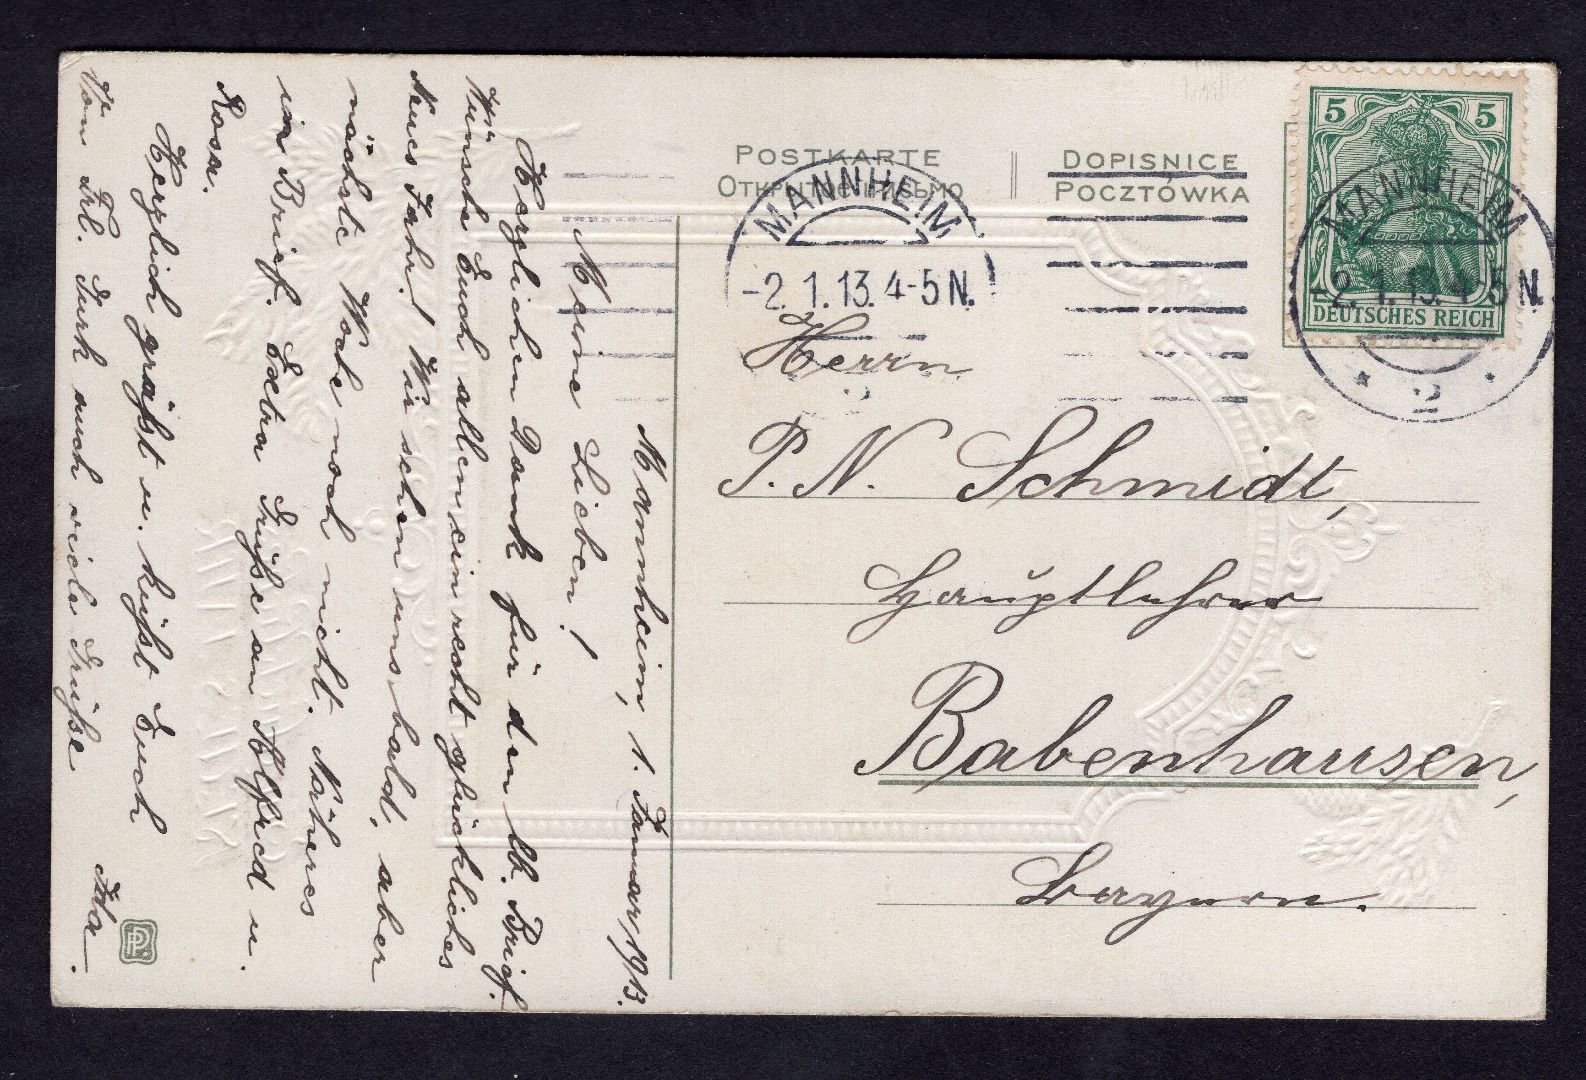 POSTKARTE
ОТКРЫТОЕ ПИСЬМО
DOPISNICE
POCZTÓWKA
MANNHEIM
-2. 1. 13. 4-5 N.
2
5 5
DEUTSCHES REICH
MANNHEIM
-2. 1. 13. 4-5 N.
* 2 *
Herrn
P. N. Schmidt,
Hauptlehrer
Babenhausen,
Bayern.
Mannheim, 1. Januar 1913.
Meine Lieben!
Herzlichen Dank für den lb. Brief.
Wünsche Euch allen ein recht glückliches
Neues Jahr! Wir sehen uns bald, aber
nächste Woche noch nicht. Näheres
im Brief. Extra Grüße an Alfred u.
Rosa.
Herzlich grüßt u. küßt Euch
Von Frl. Turk auch viele Grüße
PP.